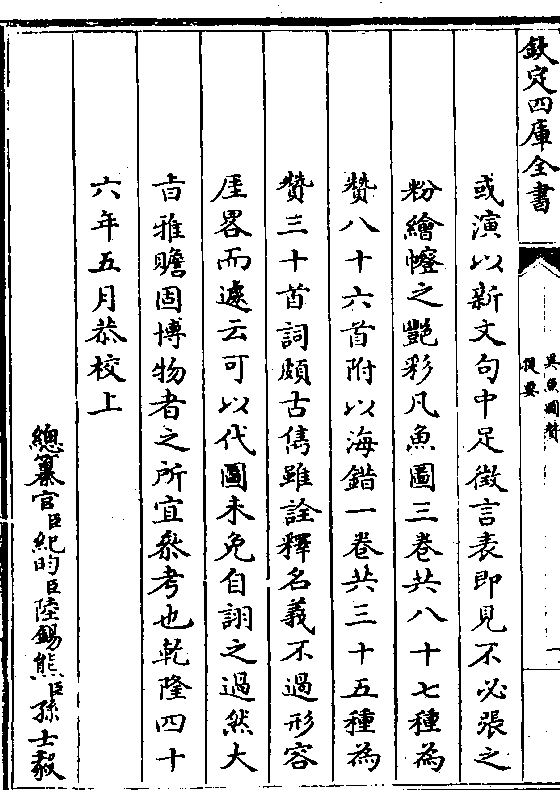 欽定四庫全書
異魚圖贊
提要
一
或演以新文句中足徵言表即見不必張之
粉繪幰之艷彩凡魚圖三卷共八十七種為
贊八十六首附以海錯一卷共三十五種為
贊三十首詞頗古雋雖詮釋名義不過形容
厓畧而遽云可以代圖未免自詡之過然大
㫖雅贍固博物者之所宜叅考也乾隆四十
六年五月恭校上
總纂官臣紀昀臣陸錫熊臣孫士毅